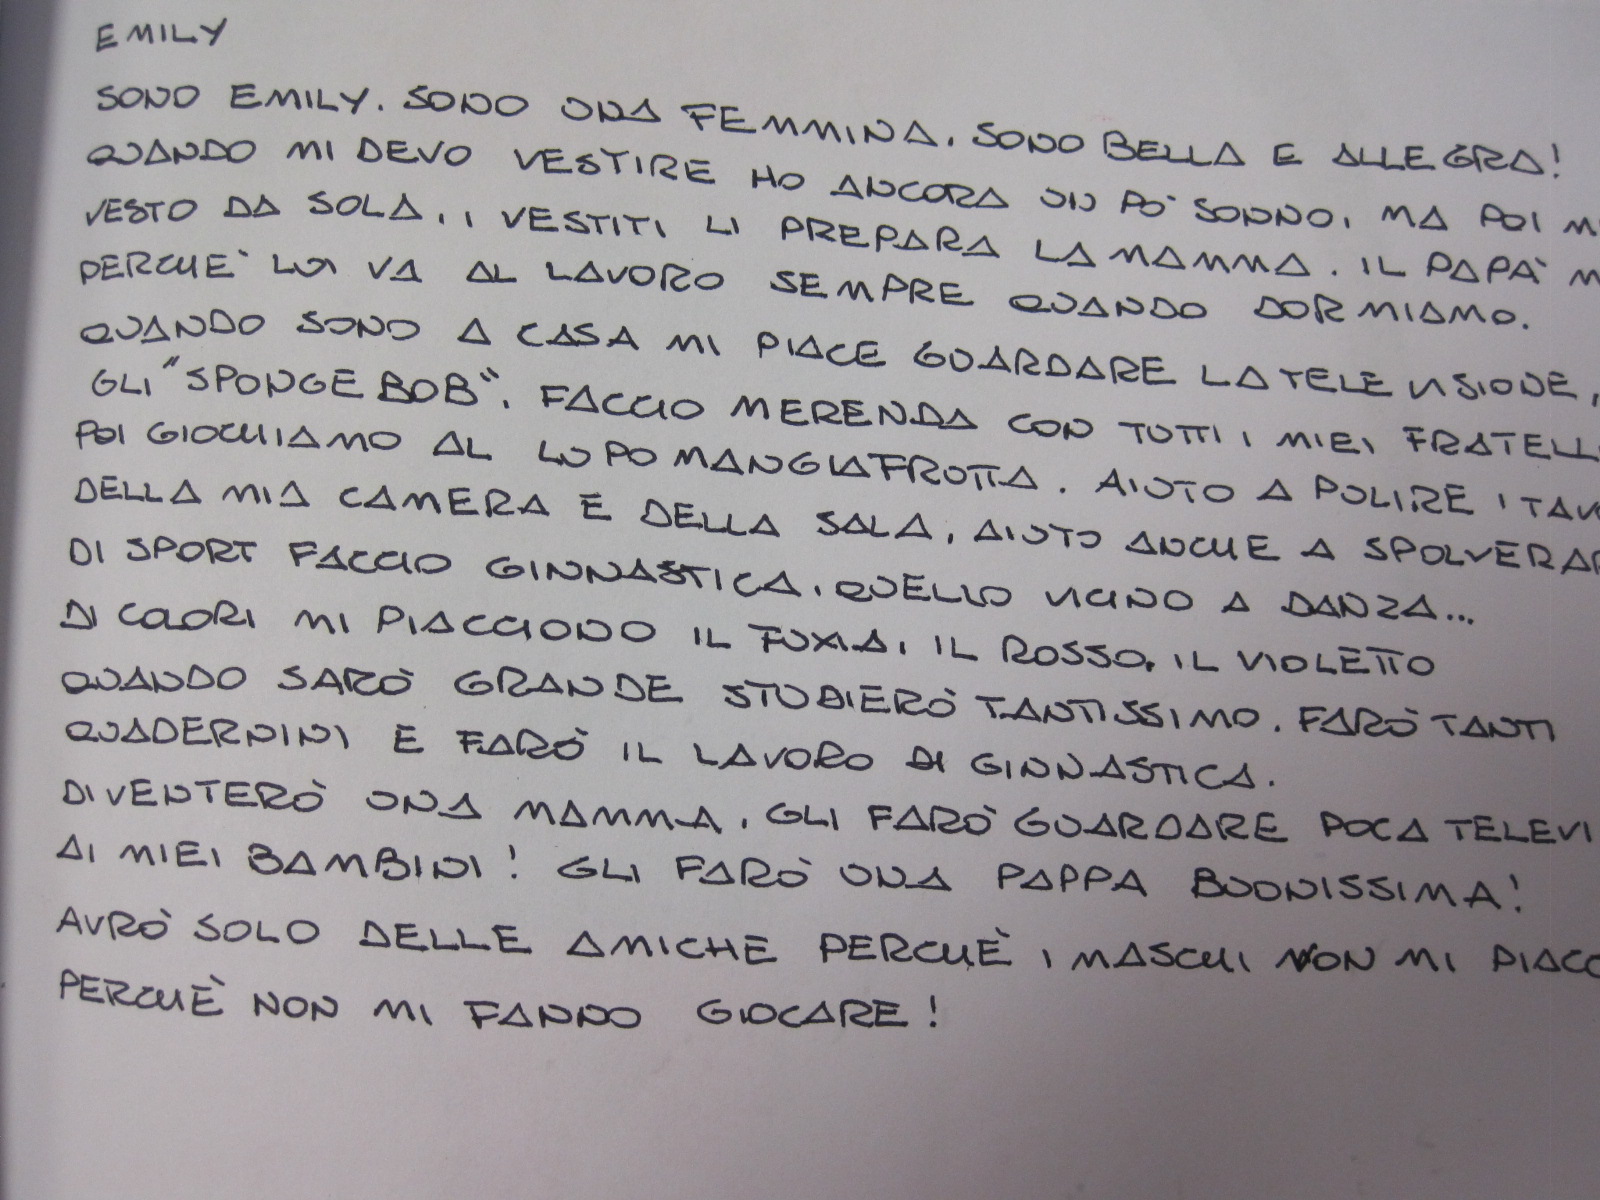 EMILY
SONO EMILY. SONO UNA FEMMINA. SONO BELLA E ALLEGRA!
QUANDO MI DEVO VESTIRE HO ANCORA UN PO' SONNO, MA POI M
VESTO DA SOLA, I VESTITI LI PREPARA LA MAMMA. IL PAPA' M
PERCHE' LUI VA AL LAVORO SEMPRE QUANDO DORMIAMO.
QUANDO SONO A CASA MI PIACE GUARDARE LA TELEVISIONE,
GLI "SPONGEBOB". FACCIO MERENDA CON TUTTI I MIEI FRATELL
POI GIOCHIAMO AL LUPO MANGIAFRUTTA. AIUTO A PULIRE I TAV
DELLA MIA CAMERA E DELLA SALA, AIUTO ANCHE A SPOLVERAR
DI SPORT FACCIO GINNASTICA, QUELLO VICINO A DANZA...
DI COLORI MI PIACCIONO IL FUXIA, IL ROSSO, IL VIOLETTO
QUANDO SARÒ GRANDE STUDIERÒ TANTISSIMO. FARÒ TANTI
QUADERNINI E FARÒ IL LAVORO DI GINNASTICA.
DIVENTERÒ UNA MAMMA, GLI FARÒ GUARDARE POCA TELEVI
AI MIEI BAMBINI! GLI FARÒ UNA PAPPA BUONISSIMA!
AVRÒ SOLO DELLE AMICHE PERCHÈ I MASCHI NON MI PIACC
PERCHÈ NON MI FANNO GIOCARE!